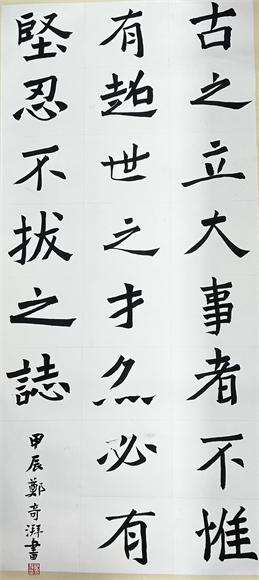 古之立大事者不惟
有超世之才亦必有
堅忍不拔之誌
甲辰鄭奇湃書